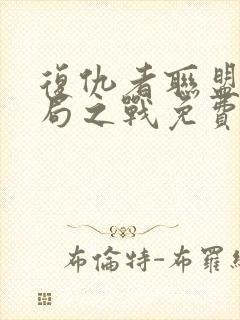 復仇者聯盟
局之戰免費
布倫特-布羅